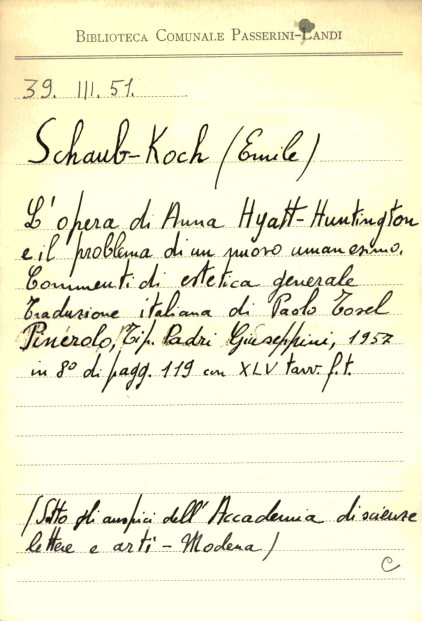 BIBLIOTECA COMUNALE PASSERINI-LANDI
39. III. 51.
Schaub-Koch (Emile)
L'opera di Anna Hyatt-Huntington
e il problema di un nuovo umanesimo.
Commenti di estetica generale
Traduzione italiana di Paolo Tosel
Pinerolo, Tip. Padri Giuseppini, 1957
in 8° di pagg. 119 con XLV tavv. f. t.
(Sotto gli auspici dell'Accademia di scienze
lettere e arti - Modena)
C